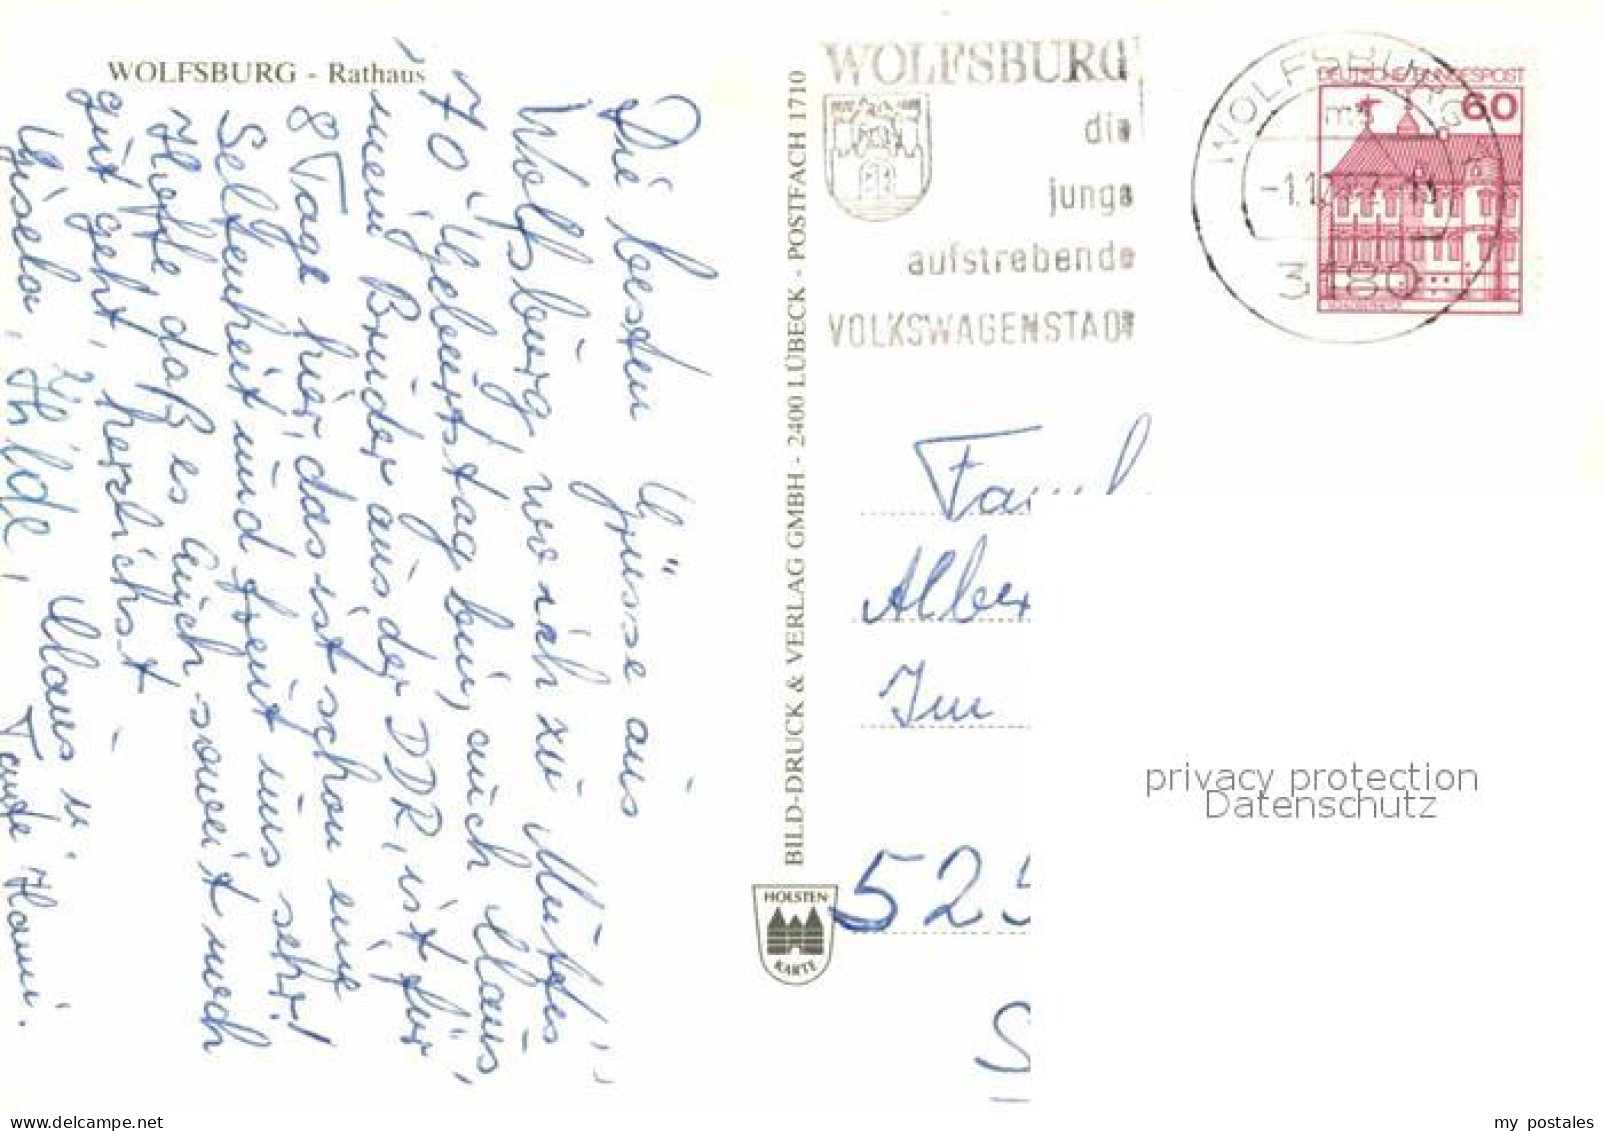 WOLFSBURG - Rathaus
Die besten Grüsse aus
Wolfsburg, wo ich zu Mutti's
70. Geburtstag bin, auch Klaus,
mein Bruder aus der DDR, ist für
8 Tage hier, das ist schon eine
Seltenheit und freut uns sehr!
Hoffe daß es Euch soweit noch
gut geht, herzlichst
Gisela, Hilde, Klaus u.
Tante Hanni.
BILD-DRUCK & VERLAG GMBH - 2400 LÜBECK - POSTFACH 1710
HOLSTEN-
KARTE
WOLFSBURG
die
junge
aufstrebende
VOLKSWAGENSTADT
WOLFSBURG
3180
DEUTSCHE BUNDESPOST
60
Fam
Alber
Im
52
S
privacy protection
Datenschutz
delcampe.net
my_postales